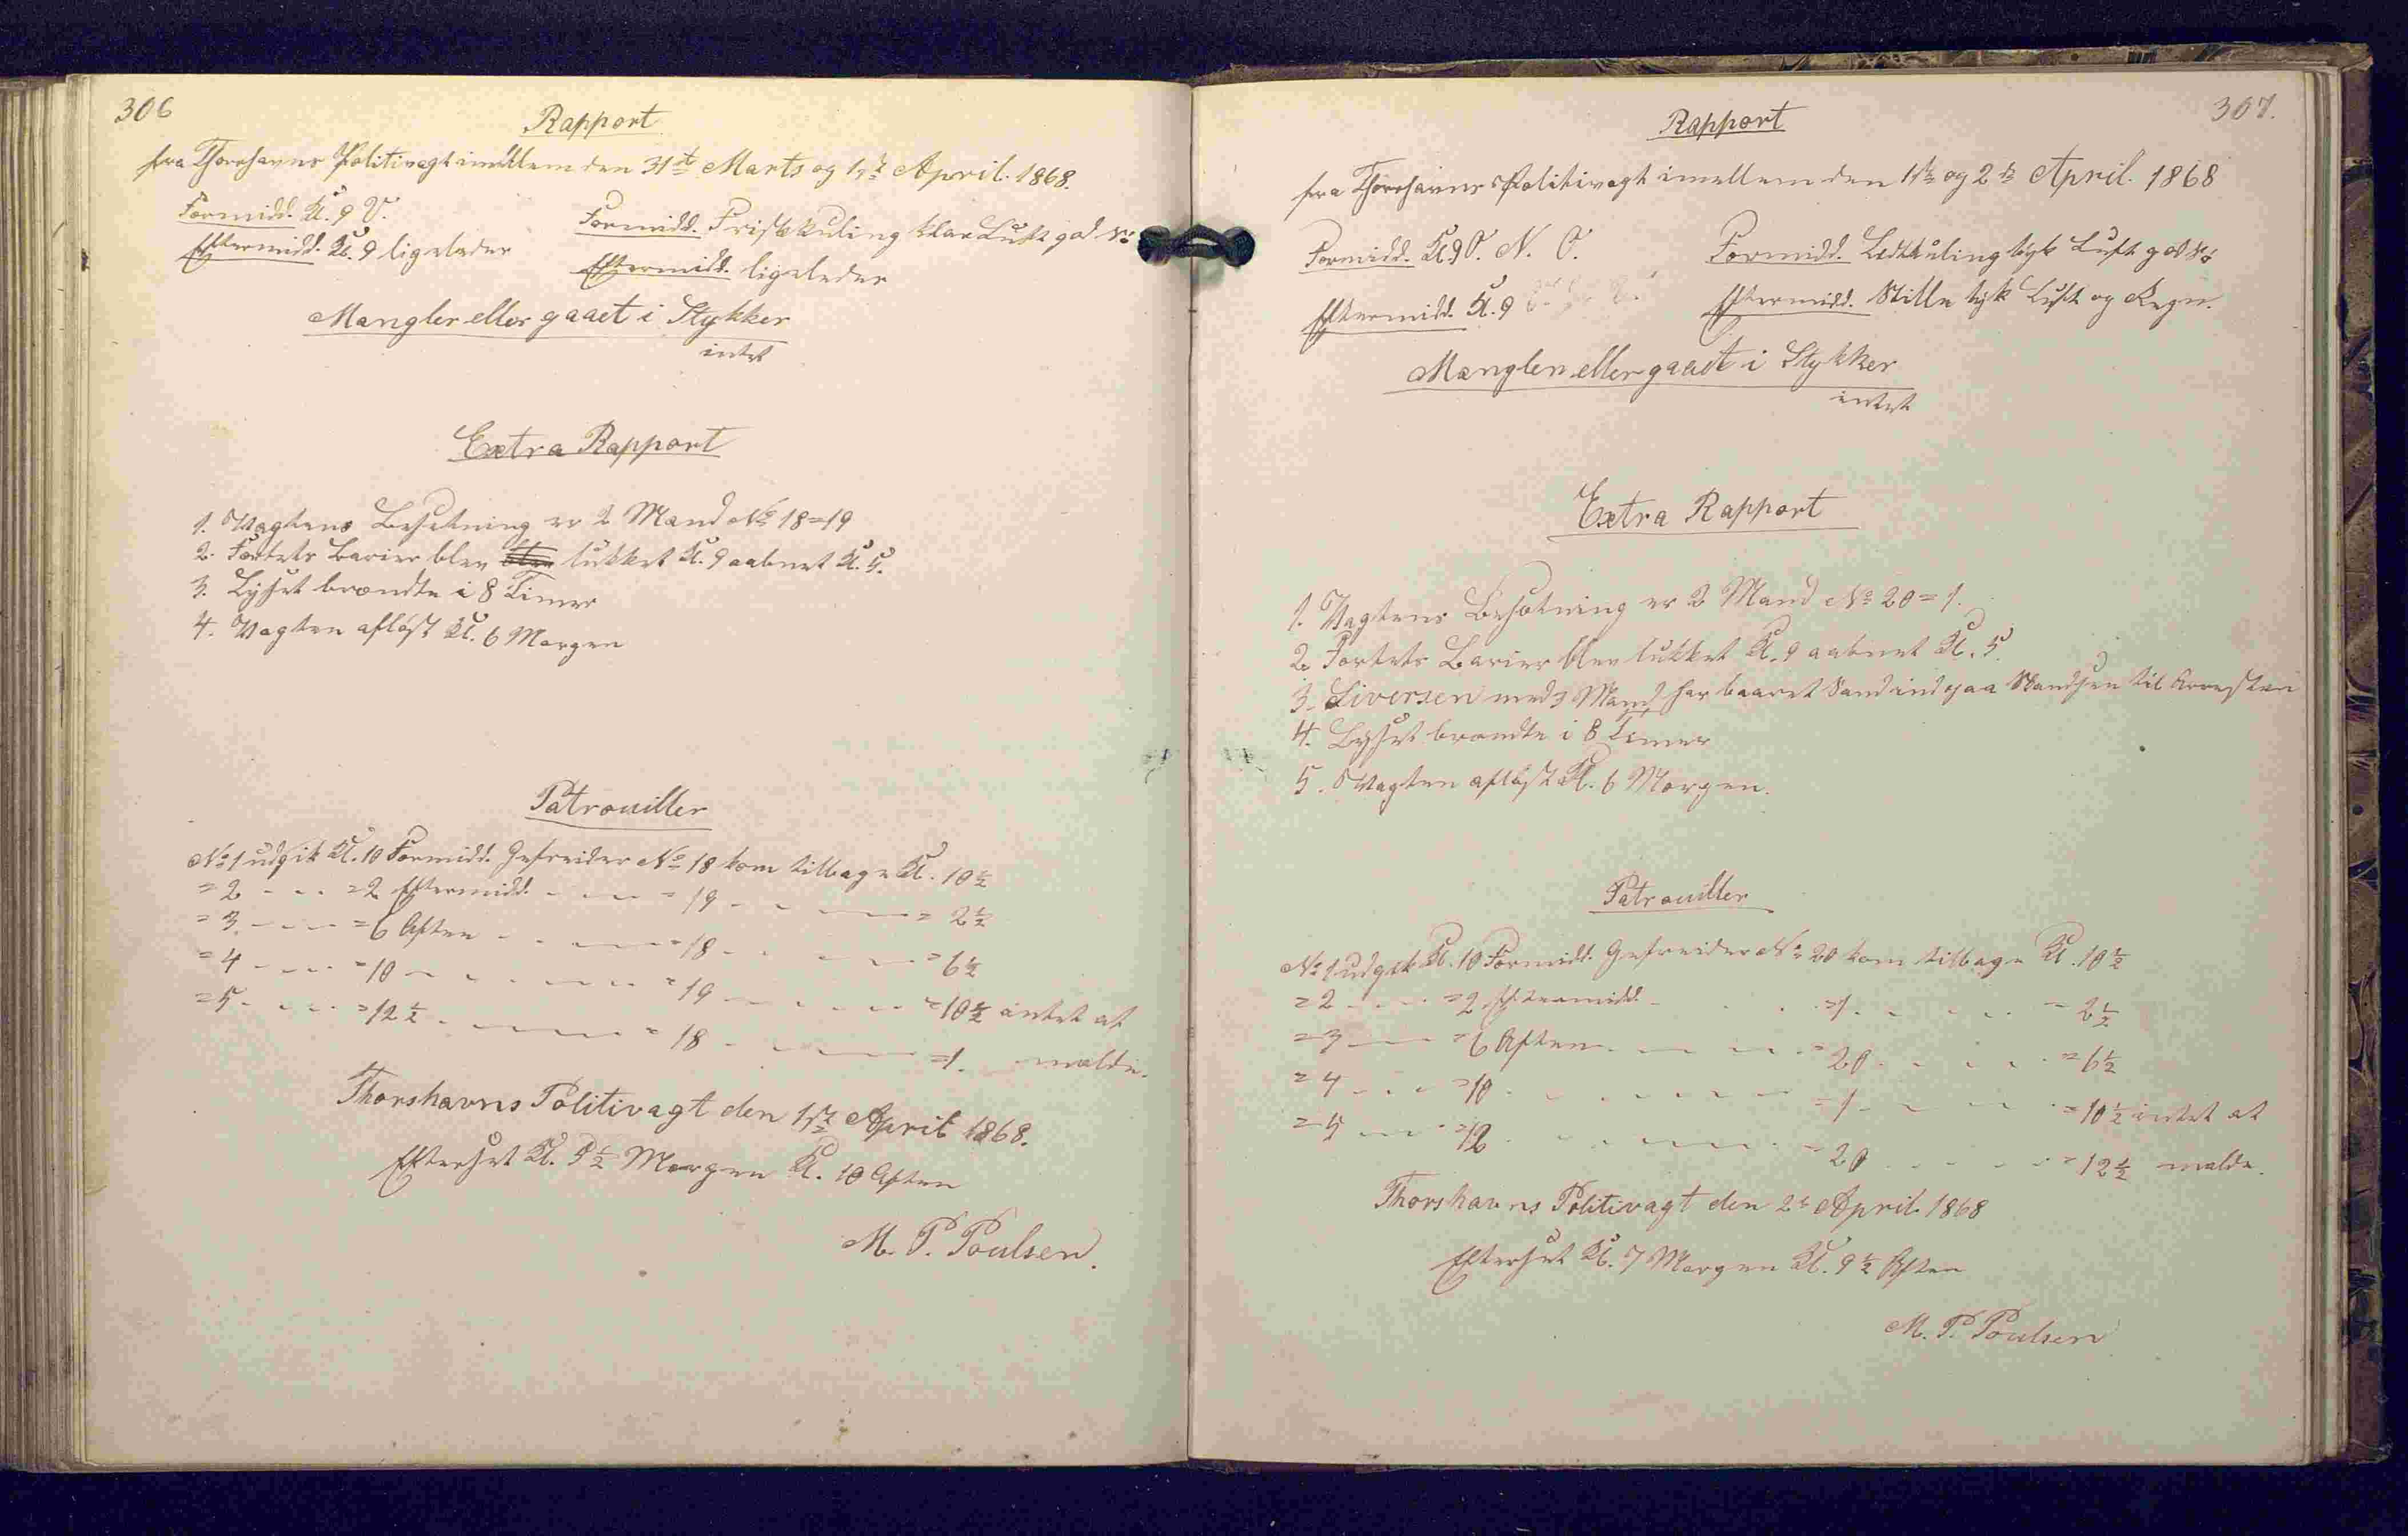 306
Rapport
fra Thorshavns Politivagt imellem den 31te Marts og 1ste April. 1868.
Formidd. Kl. 9 V.
Formidd. Friskkuling klar Luft god
Eftermidd. Kl. 9 ligeledes
Eftermidd. ligeledes
Mangler eller gaaet i Stykker
intet
Extra Rapport
1. Vagtens Besætning er 2 Mand No 18=19
2. Fortets Barier blev lukket Kl. 9 aabnet Kl. 5.
3. Lyset brændte i 8 Timer
4. Vagten afløst Kl. 6 Morgen
Patrouiller
No 1 udgik Kl. 10 Formidd. Gefreider No 18 kom tilbage Kl. 10½
=2 - - - =2 Eftermidd. - - - =19 - - - = 2½
=3 - - - =6 Aften - - - =18 - - - =6½
=4 - - - =10 - - - =19 - - - =10½ intet at
=5 - - - =12½ - - - =18 - - - =1. melde.
Thorshavns Politivagt den 1ste April 1868.
Efterset Kl. 5½ Morgen Kl. 10 Aften
M. P. Poulsen.
307.
Rapport
fra Thorshavns Politivagt imellem den 1ste og 2den April. 1868
Formidd. Kl. 9 O. N. O.
Formidd. Ledkuling tyk Luft god
Eftermidd. Kl. 9
Eftermidd. Stille tyk Luft og Regn.
Mangler eller gaaet i Stykker
intet
Extra Rapport
1. Vagtens Besætning er 2 Mand No 20=1.
2. Fortets Barier blev lukket Kl. 9 aabnet Kl. 5.
3. Siversen med 3 Mand har baaret Sand ind paa Skandsen til Arresten
4. Lyset brændte i 8 Timer
5. Vagten afløst Kl. 6 Morgen.
Patrouiller
No 1 udgik Kl. 10 Formidd. Gefreider No 20 kom tilbage Kl. 10½
=2 - - - =2 Eftermidd. - - - =1 - - - = 2½
=3 - - - =6 Aften - - - =20 - - - =6½
=4 - - - =10 - - - =1 - - - =10½ intet at
=5 - - - =12 - - - =20 - - - =12½ melde.
Thorshavns Politivagt den 2den April 1868
Efterset Kl. 7 Morgen Kl. 9½ Aften
M. P. Poulsen